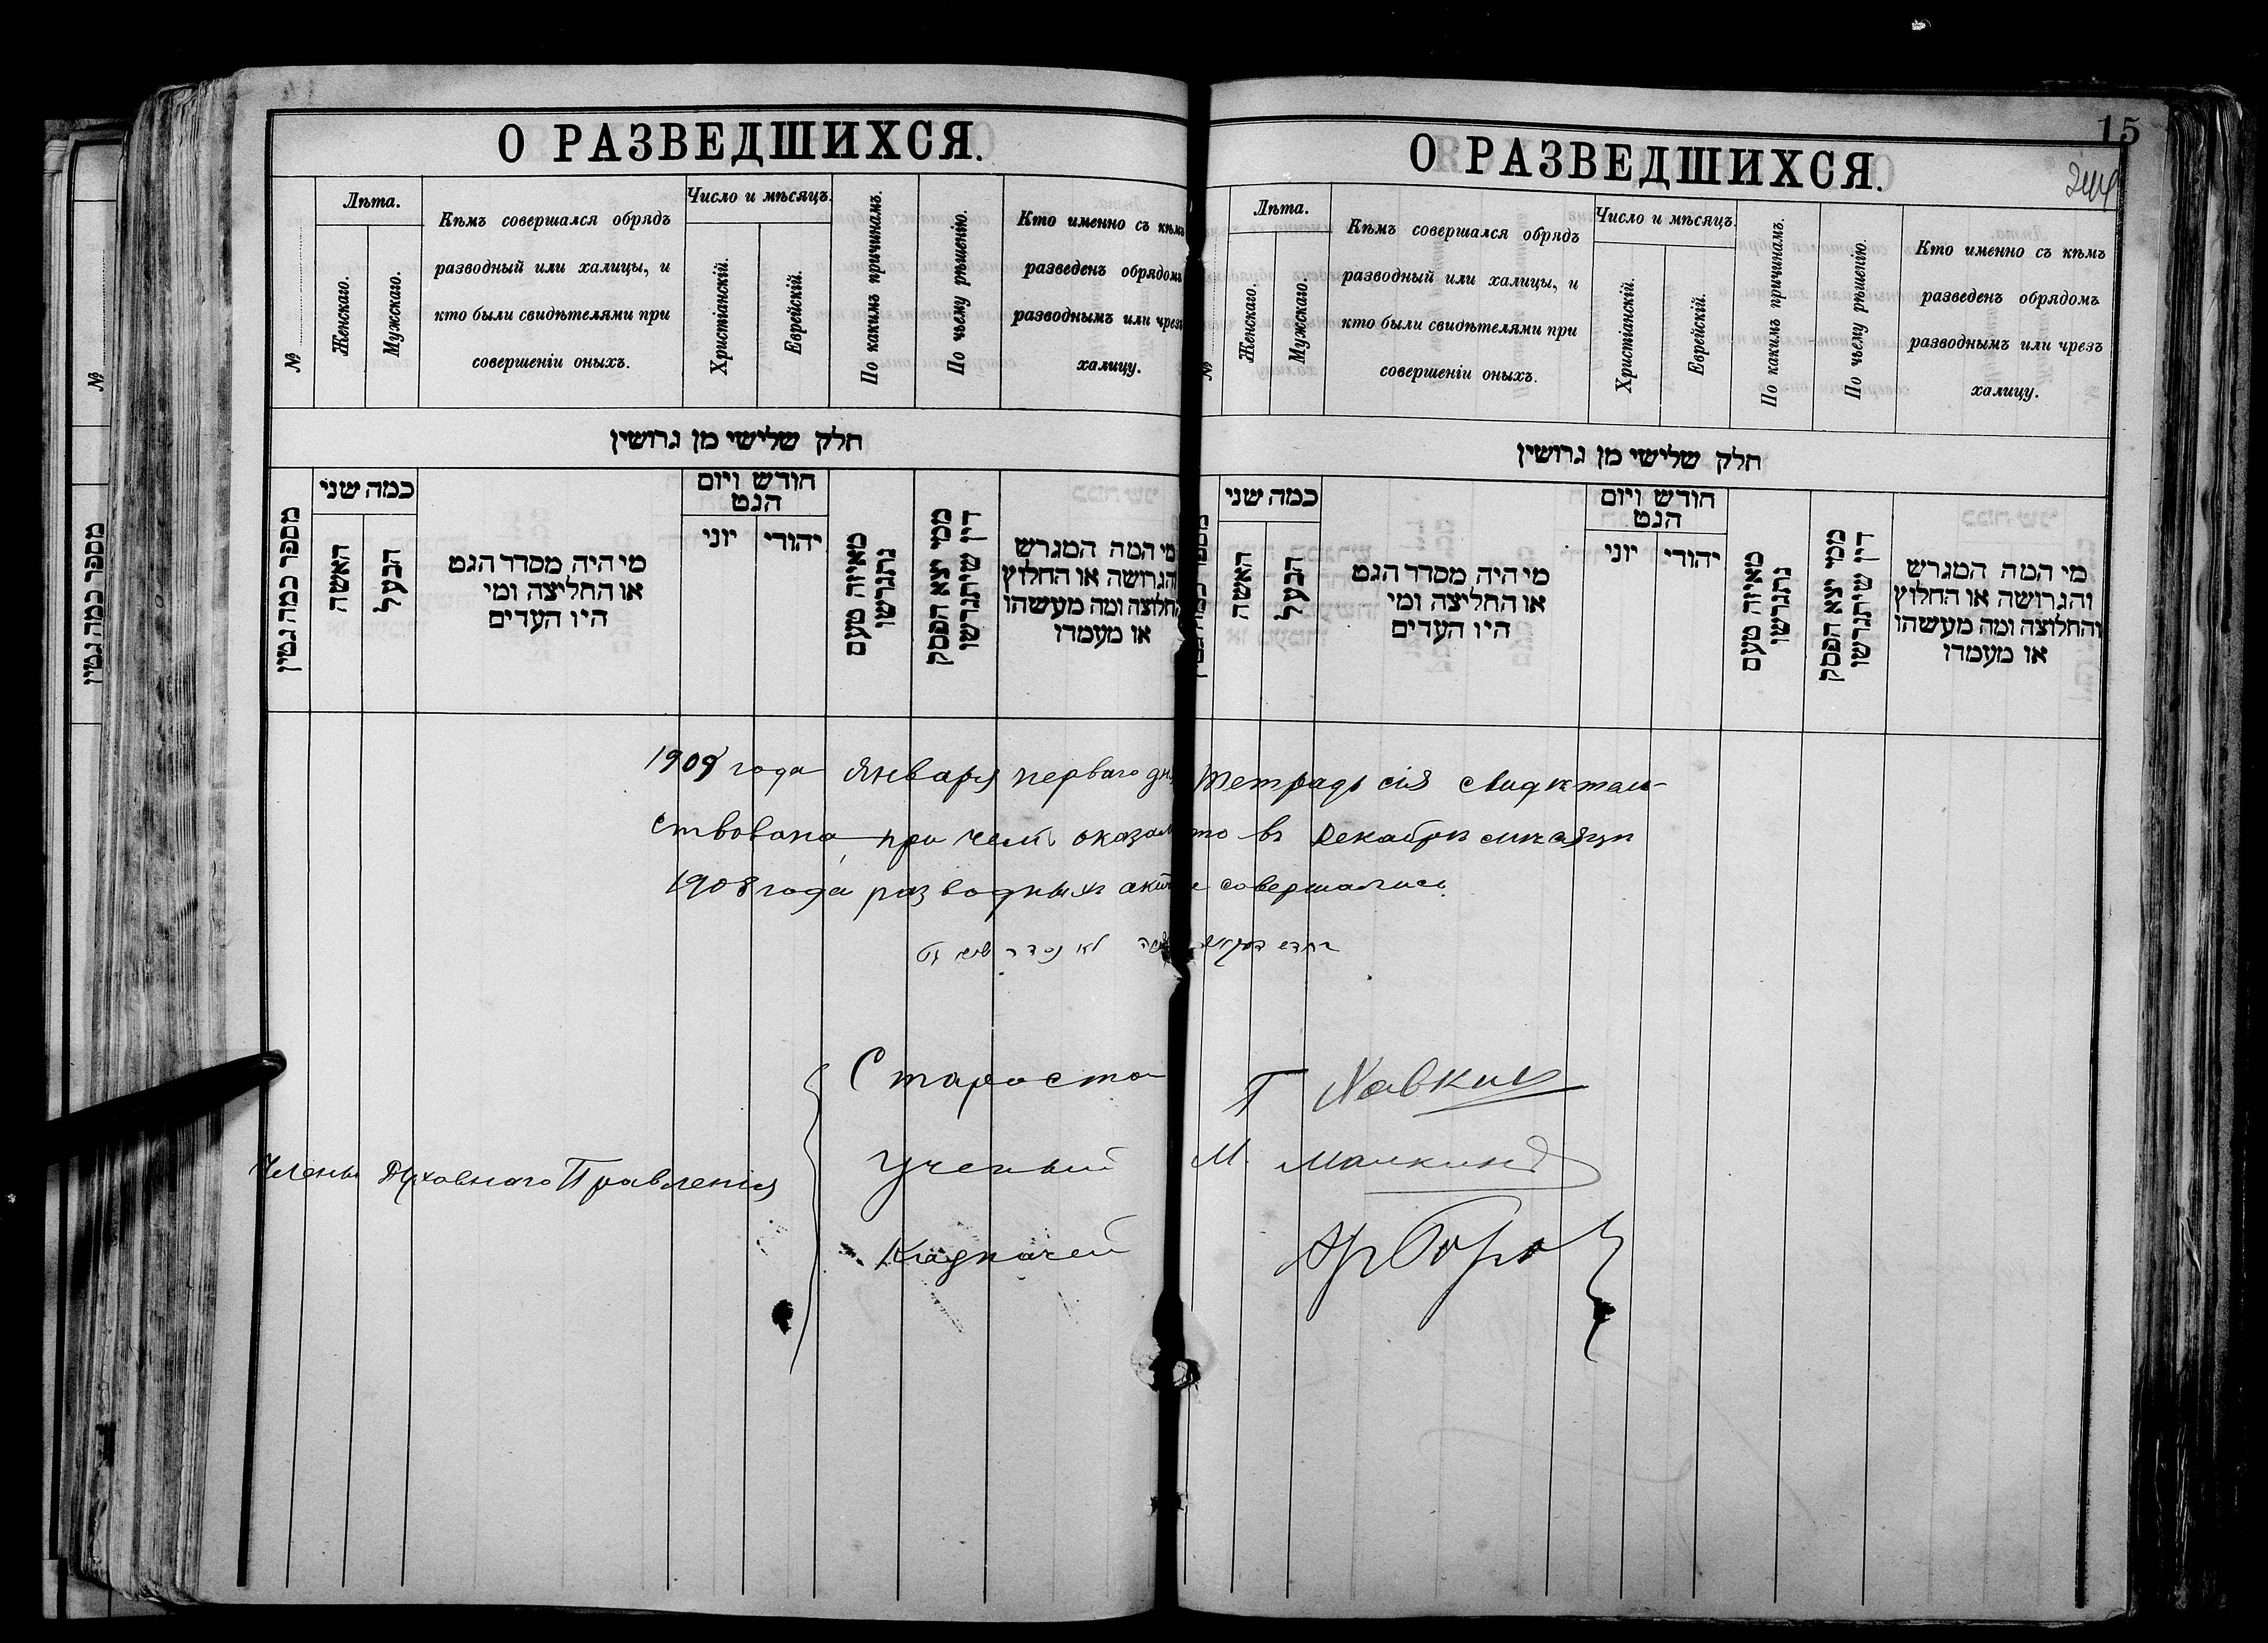 О РАЗВЕДШИХСЯ.
№
Лѣта.
Женскаго.
Мужскаго.
Кѣмъ совершался обрядъ
разводный или халицы, и
кто были свидѣтелями при
совершеніи оныхъ.
Число и мѣсяцъ.
Христіанскій.
Еврейскій.
По какимъ причинамъ.
По чьему рѣшенію.
Кто именно съ кѣмъ
разведенъ обрядомъ
разводнымъ или чрезъ
халицу.
חלק שלישי מן גרושין
מספר כמה גטין
כמה שני
האשה
הבעל
מי היה מסדר הגט
או החליצה ומי
היו העדים
חודש ויום
הגט
יוני
יהודי
מאיזה טעם
נתגרשו
ממי יצא הפסק
דין שיתגרשו
מי המה המגרש
והגרושה או החלוץ
והחלוצה ומה מעשהו
או מעמדו
О РАЗВЕДШИХСЯ.
15
№
Лѣта.
Женскаго.
Мужскаго.
Кѣмъ совершался обрядъ
разводный или халицы, и
кто были свидѣтелями при
совершеніи оныхъ.
Число и мѣсяцъ.
Христіанскій.
Еврейскій.
По какимъ причинамъ.
По чьему рѣшенію.
Кто именно съ кѣмъ
разведенъ обрядомъ
разводнымъ или чрезъ
халицу.
חלק שלישי מן גרושין
כמה שני
האשה
הבעל
מי היה מסדר הגט
או החליצה ומי
היו העדים
חודש ויום
הגט
יוני
יהודי
מאיזה טעם
נתגרשו
ממי יצא הפסק
דין שיתגרשו
מי המה המגרש
והגרושה או החלוץ
והחלוצה ומה מעשהו
או מעמדו
1909 года Января перваго дня тетрадь сія свидѣтель-
ствована, при чемъ оказалось что въ Декабрѣ мѣсяцѣ
1908 года разводныхъ актовъ не совершалось.
Члены Духовнаго Правленія
Староста Г Хавкин
Ученый М. Малкинъ
Казначей